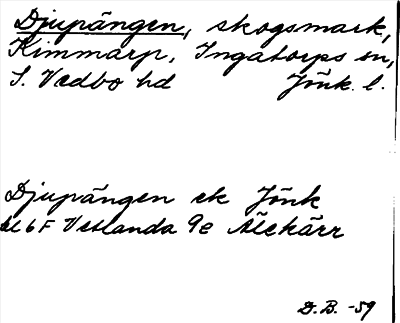 Djupängen, skogsmark,
Kimmarp, Ingatorps sn,
S. Vedbo hd Jönk. l.
Djupängen ek Jönk
bl 6F Vetlanda 9e Älekärr
D.B. -59